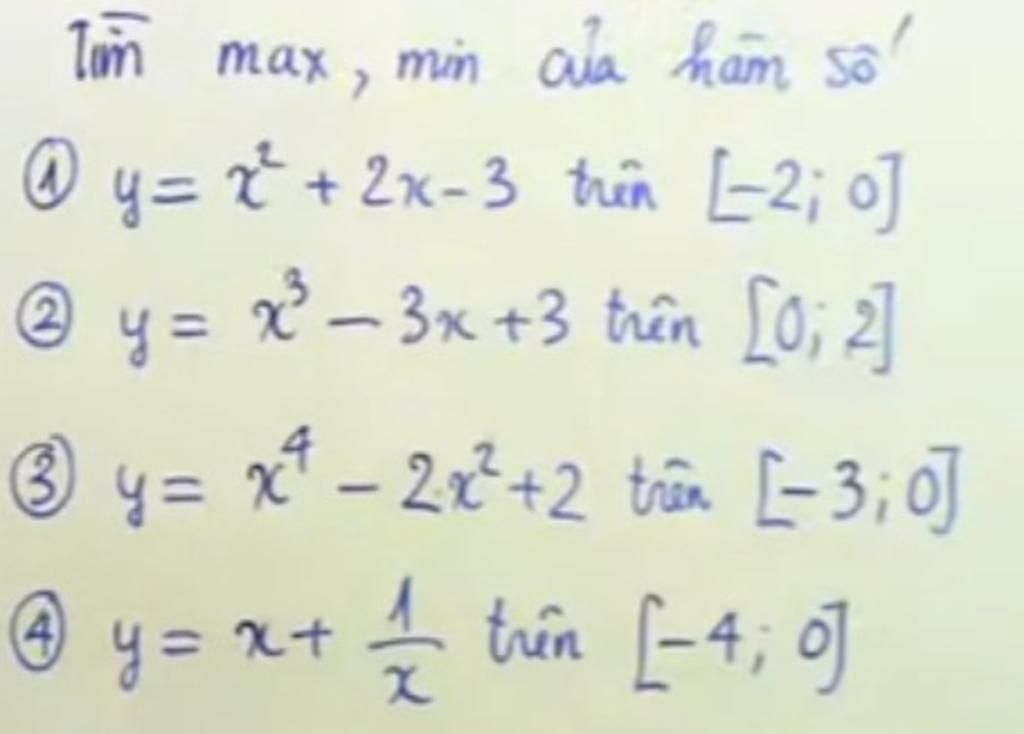 Tìm max, min của hàm số
① y = x² + 2x - 3 trên [-2; 0]
② y = x³ - 3x + 3 trên [0; 2]
③ y = x⁴ - 2x² + 2 trên [-3; 0]
④ y = x + 1/x trên [-4; 0]